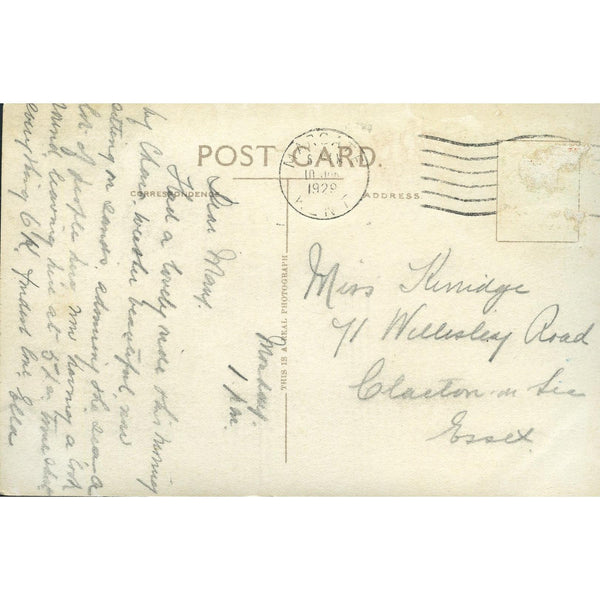 POST CARD.
CORRESPONDENCE
ADDRESS
THIS IS A REAL PHOTOGRAPH
MARGATE
10 JUN
1929
KENT
Monday.
1 pm.
Dear Mary.
Had a lovely ride this morning
by Chara. weather beautiful, now
sitting on sands. admiring the sea a
lot of people here, now having a look
round, leaving here at 5 pm,
everything OK. fondest love Ella
Miss Kerridge
71 Wellesley Road
Clacton-on-Sea
Essex.